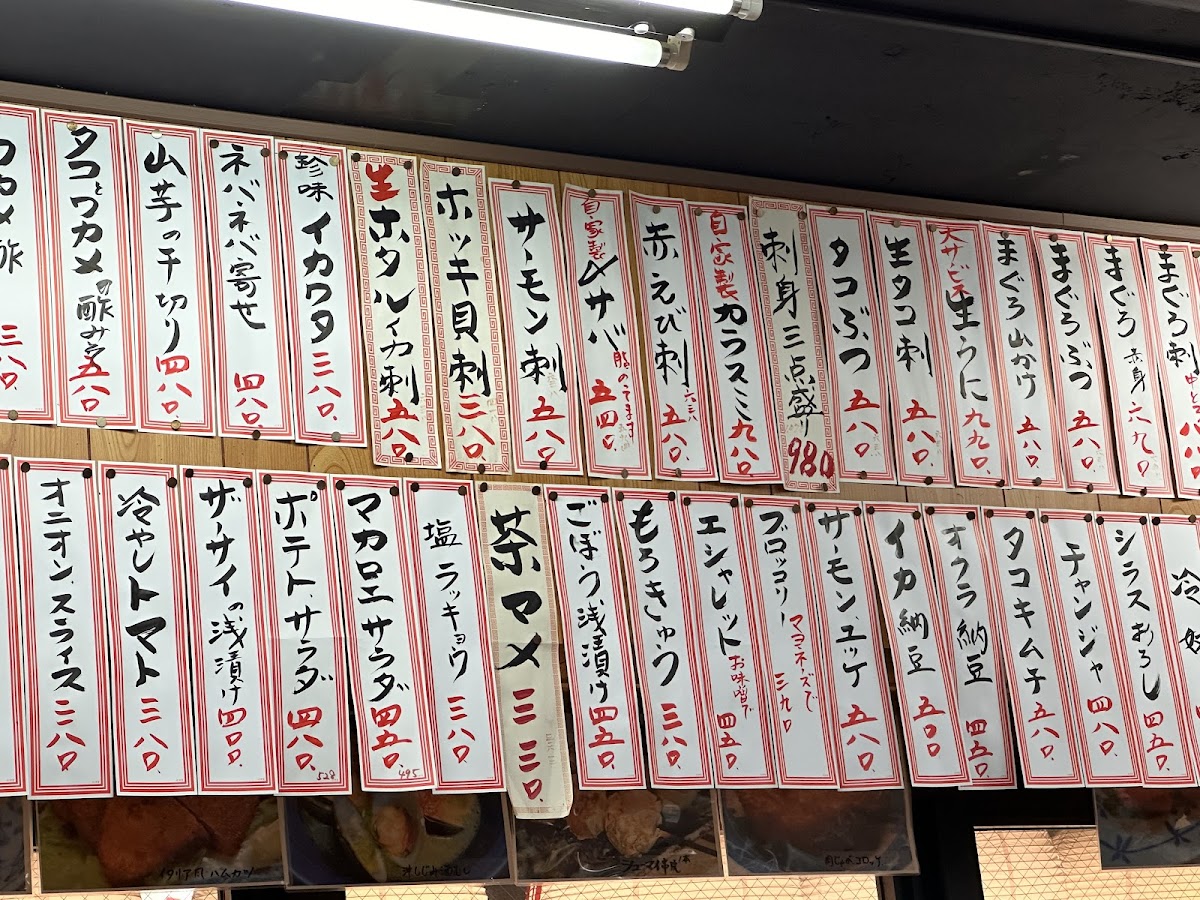 まぐろ刺
まぐろ 赤身 六九〇
まぐろぶつ 五八〇
まぐろ山かけ 五八〇
大サービス 生うに 九九〇
生タコ刺 五八〇
タコぶつ 五八〇
刺身三点盛り 980
自家製カラスミ 九八〇
赤えび刺 五八〇
自家製〆サバ 五四〇
サーモン刺 五八〇
ホッキ貝刺 三八〇
生ホタルイカ刺 五八〇
珍味 イカワタ 三八〇
ネバネバ寄せ 四八〇
山芋の千切り 四八〇
タコとワカメの酢みそ 五八〇
カメ酢 三八〇
シラスおろし 四五〇
チャンジャ 四八〇
タコキムチ 五八〇
オクラ納豆 四五〇
イカ納豆 五〇〇
サーモンユッケ 五八〇
ブロッコリー マヨネーズで 三九〇
エシャレット お味噌で 四五〇
もろきゅう 三八〇
ごぼう浅漬け 四五〇
茶マメ 三三〇
塩ラッキョウ 三八〇
マカロニサラダ 四五〇 495
ポテトサラダ 四八〇 528
ザーサイの浅漬け 四〇〇
冷やしトマト 三八〇
オニオンスライス 二八〇
イタリア風ハムカツ
肉じゃがコロッケ